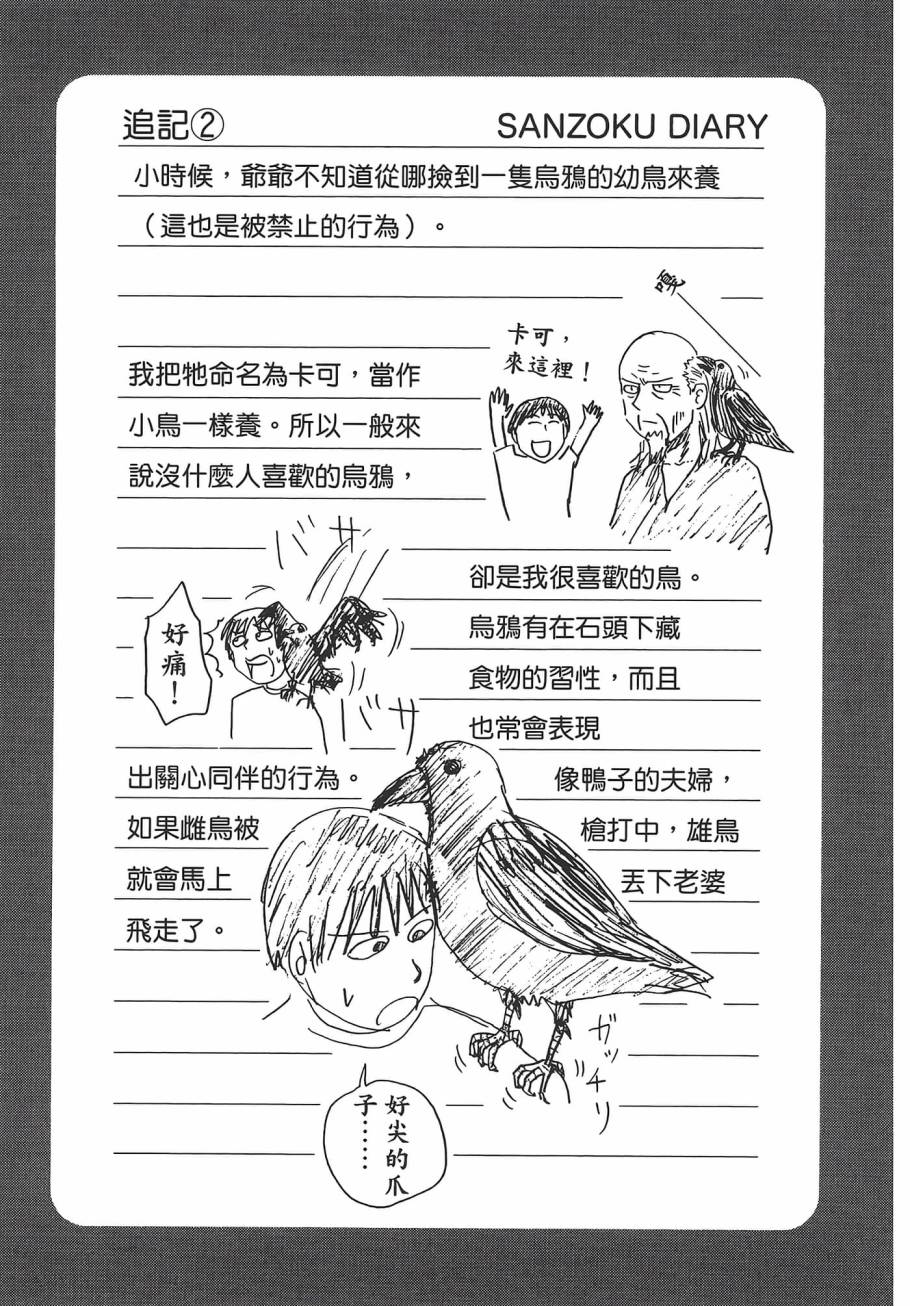 追記②
SANZOKU DIARY
小時候，爺爺不知道從哪撿到一隻烏鴉的幼鳥來養
（這也是被禁止的行為）。
嘎
卡可，
來這裡！
我把牠命名為卡可，當作
小鳥一樣養。所以一般來
說沒什麼人喜歡的烏鴉，
バサ
卻是我很喜歡的鳥。
好痛！
烏鴉有在石頭下藏
食物的習性，而且
バサ
也常會表現
出關心同伴的行為。
像鴨子的夫婦，
如果雌鳥被
槍打中，雄鳥
就會馬上
丟下老婆
飛走了。
ガッチリ
好尖的爪
子……